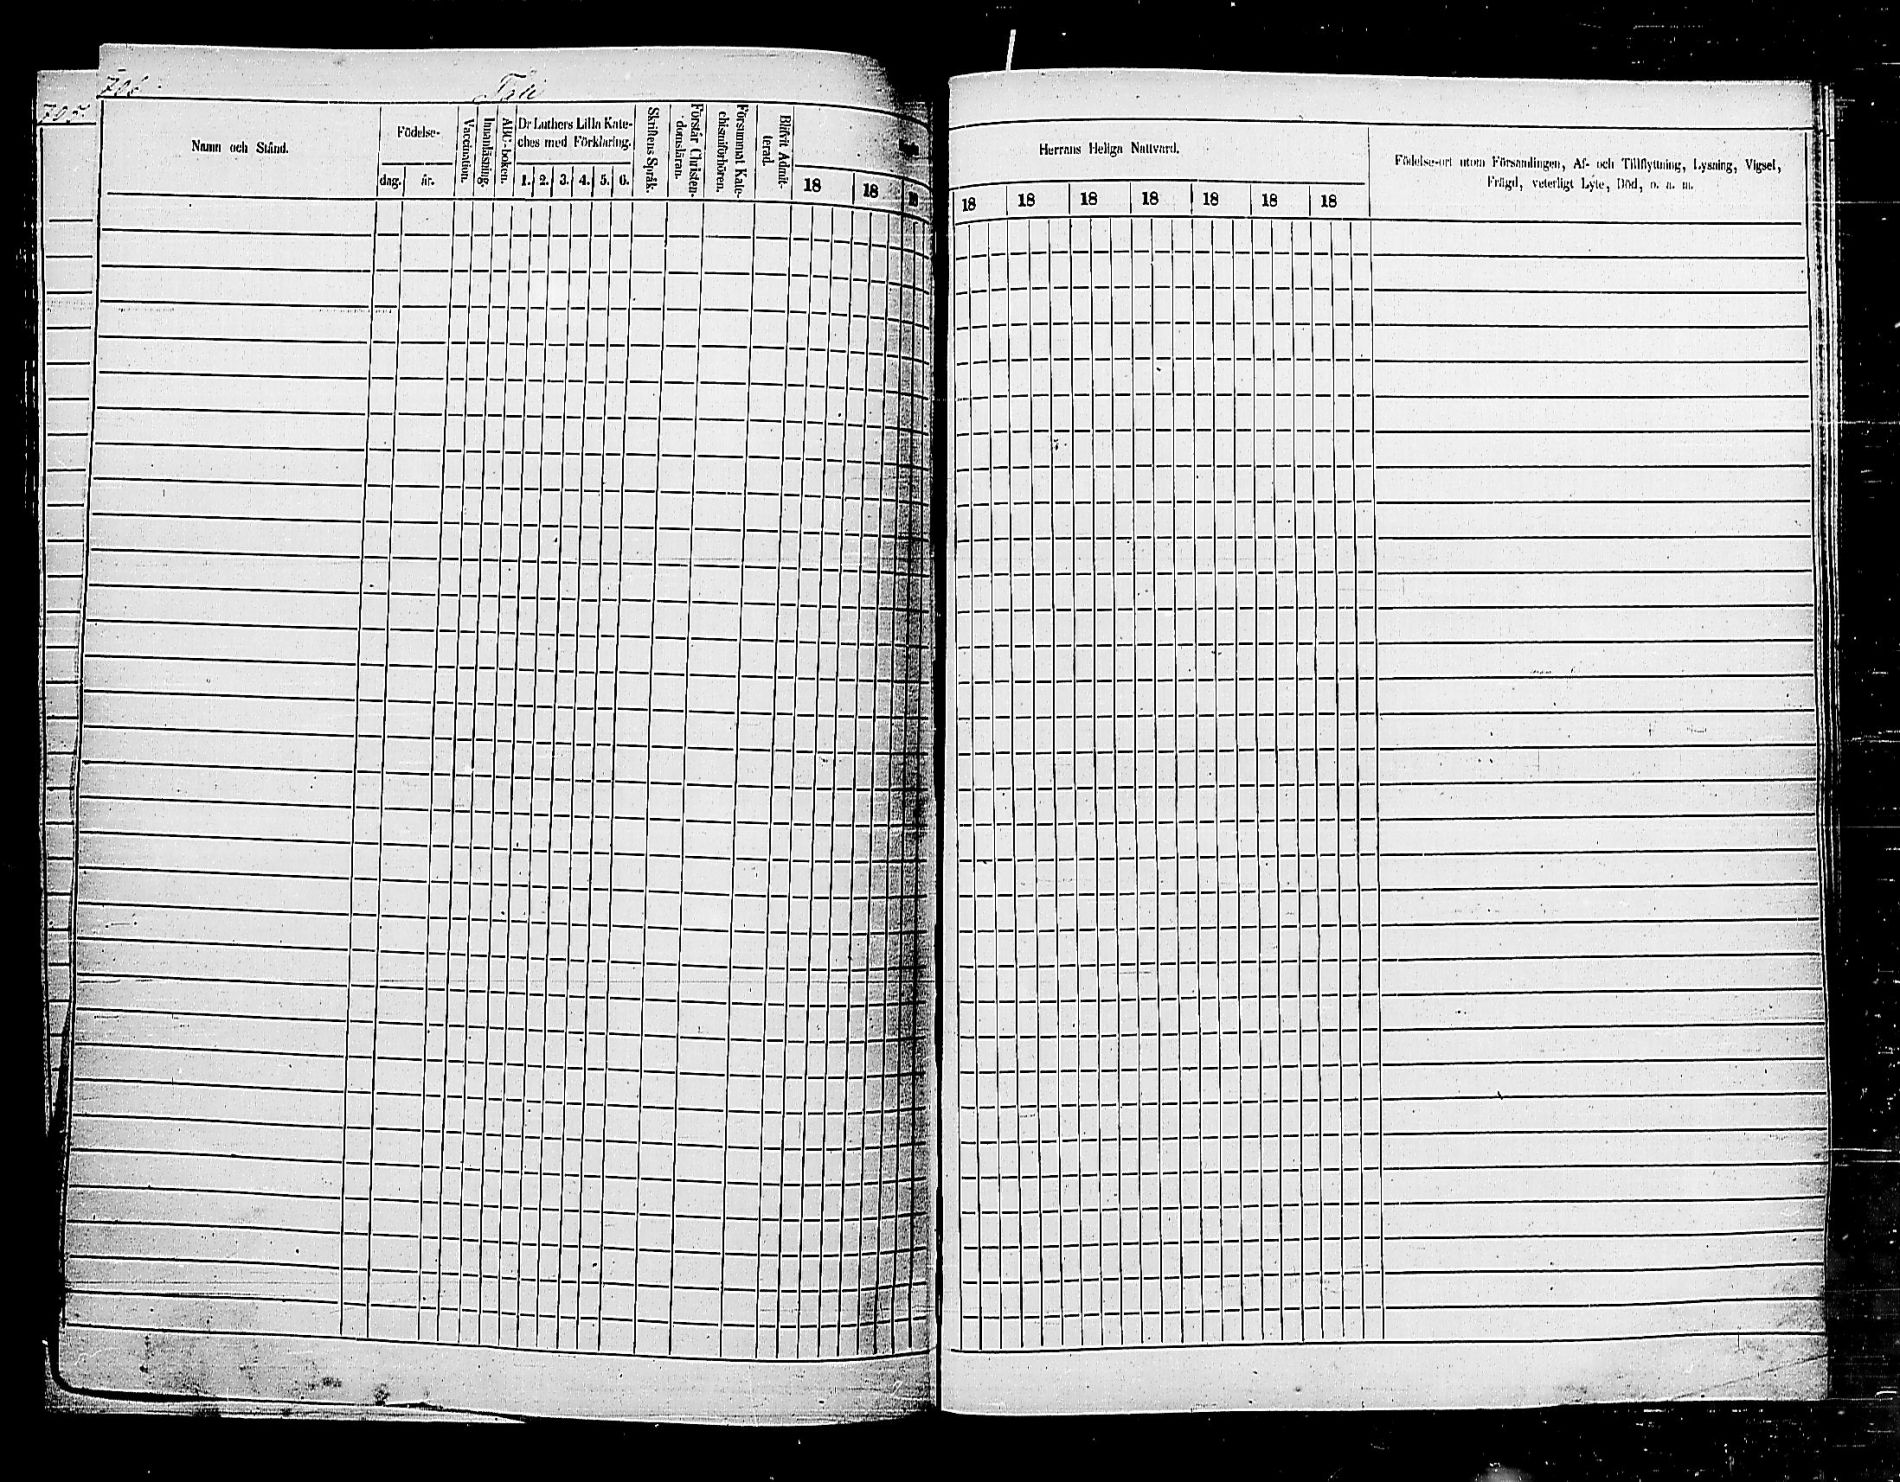 706.
705.
Namn och Stånd.
Födelse-
dag.
år.
Vaccination.
Innanläsning.
ABC-boken.
Dr Luthers Lilla Kate-
ches med Förklaring.
1. 2. 3. 4. 5. 6.
Skriftens Språk.
Förstår Christen-
domsläran.
Försummat Kate-
chismiförhören.
Blifvit Admit-
terad.
18 18 18
Herrans Heliga Nattvard.
18 18 18 18 18 18 18
Födelse-ort utom Församlingen, Af- och Tillflyttning, Lysning, Vigsel,
Frägd, veterligt Lyte, Död, o. a. m.